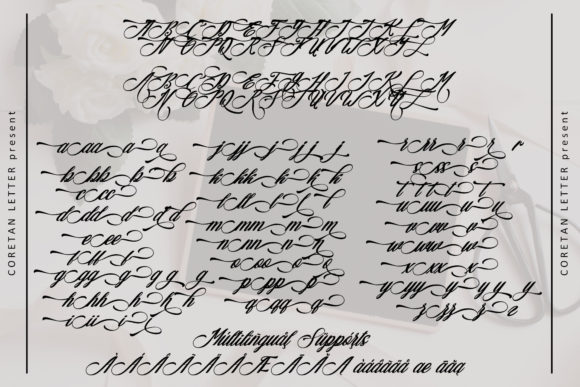 CORETAN LETTER present
A B C D E F G H I J K L M
N O P Q R S T U V W X Y Z
A B C D E F G H I J K L M
N O P Q R S T U V W X Y Z
a aa a a
b bb b b
c cc
d dd d d d
e ee
g gg g g g g
h hh h h h
i ii i
j jj j j j
k kk k k k
l ll l l
m mm m m
n nn n n
o oo o
p pp p
q qq q
r rr r r r
s ss s
t t t t t
u uu u
v vv v
w ww w
x xx x
y yy y y y y
z zz z z
Multilingual Supports
CORETAN LETTER present